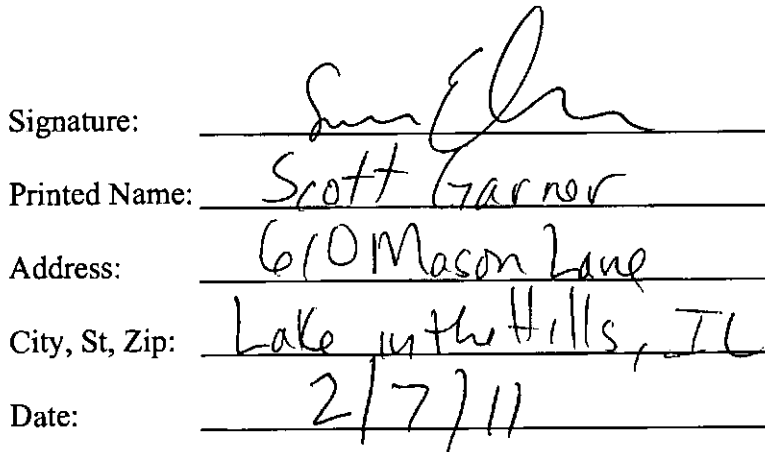 Signature:
Printed Name: Scott Garner
Address: 610 Mason Lane
City, St, Zip: Lake in the Hills, IL
Date: 2/7/11